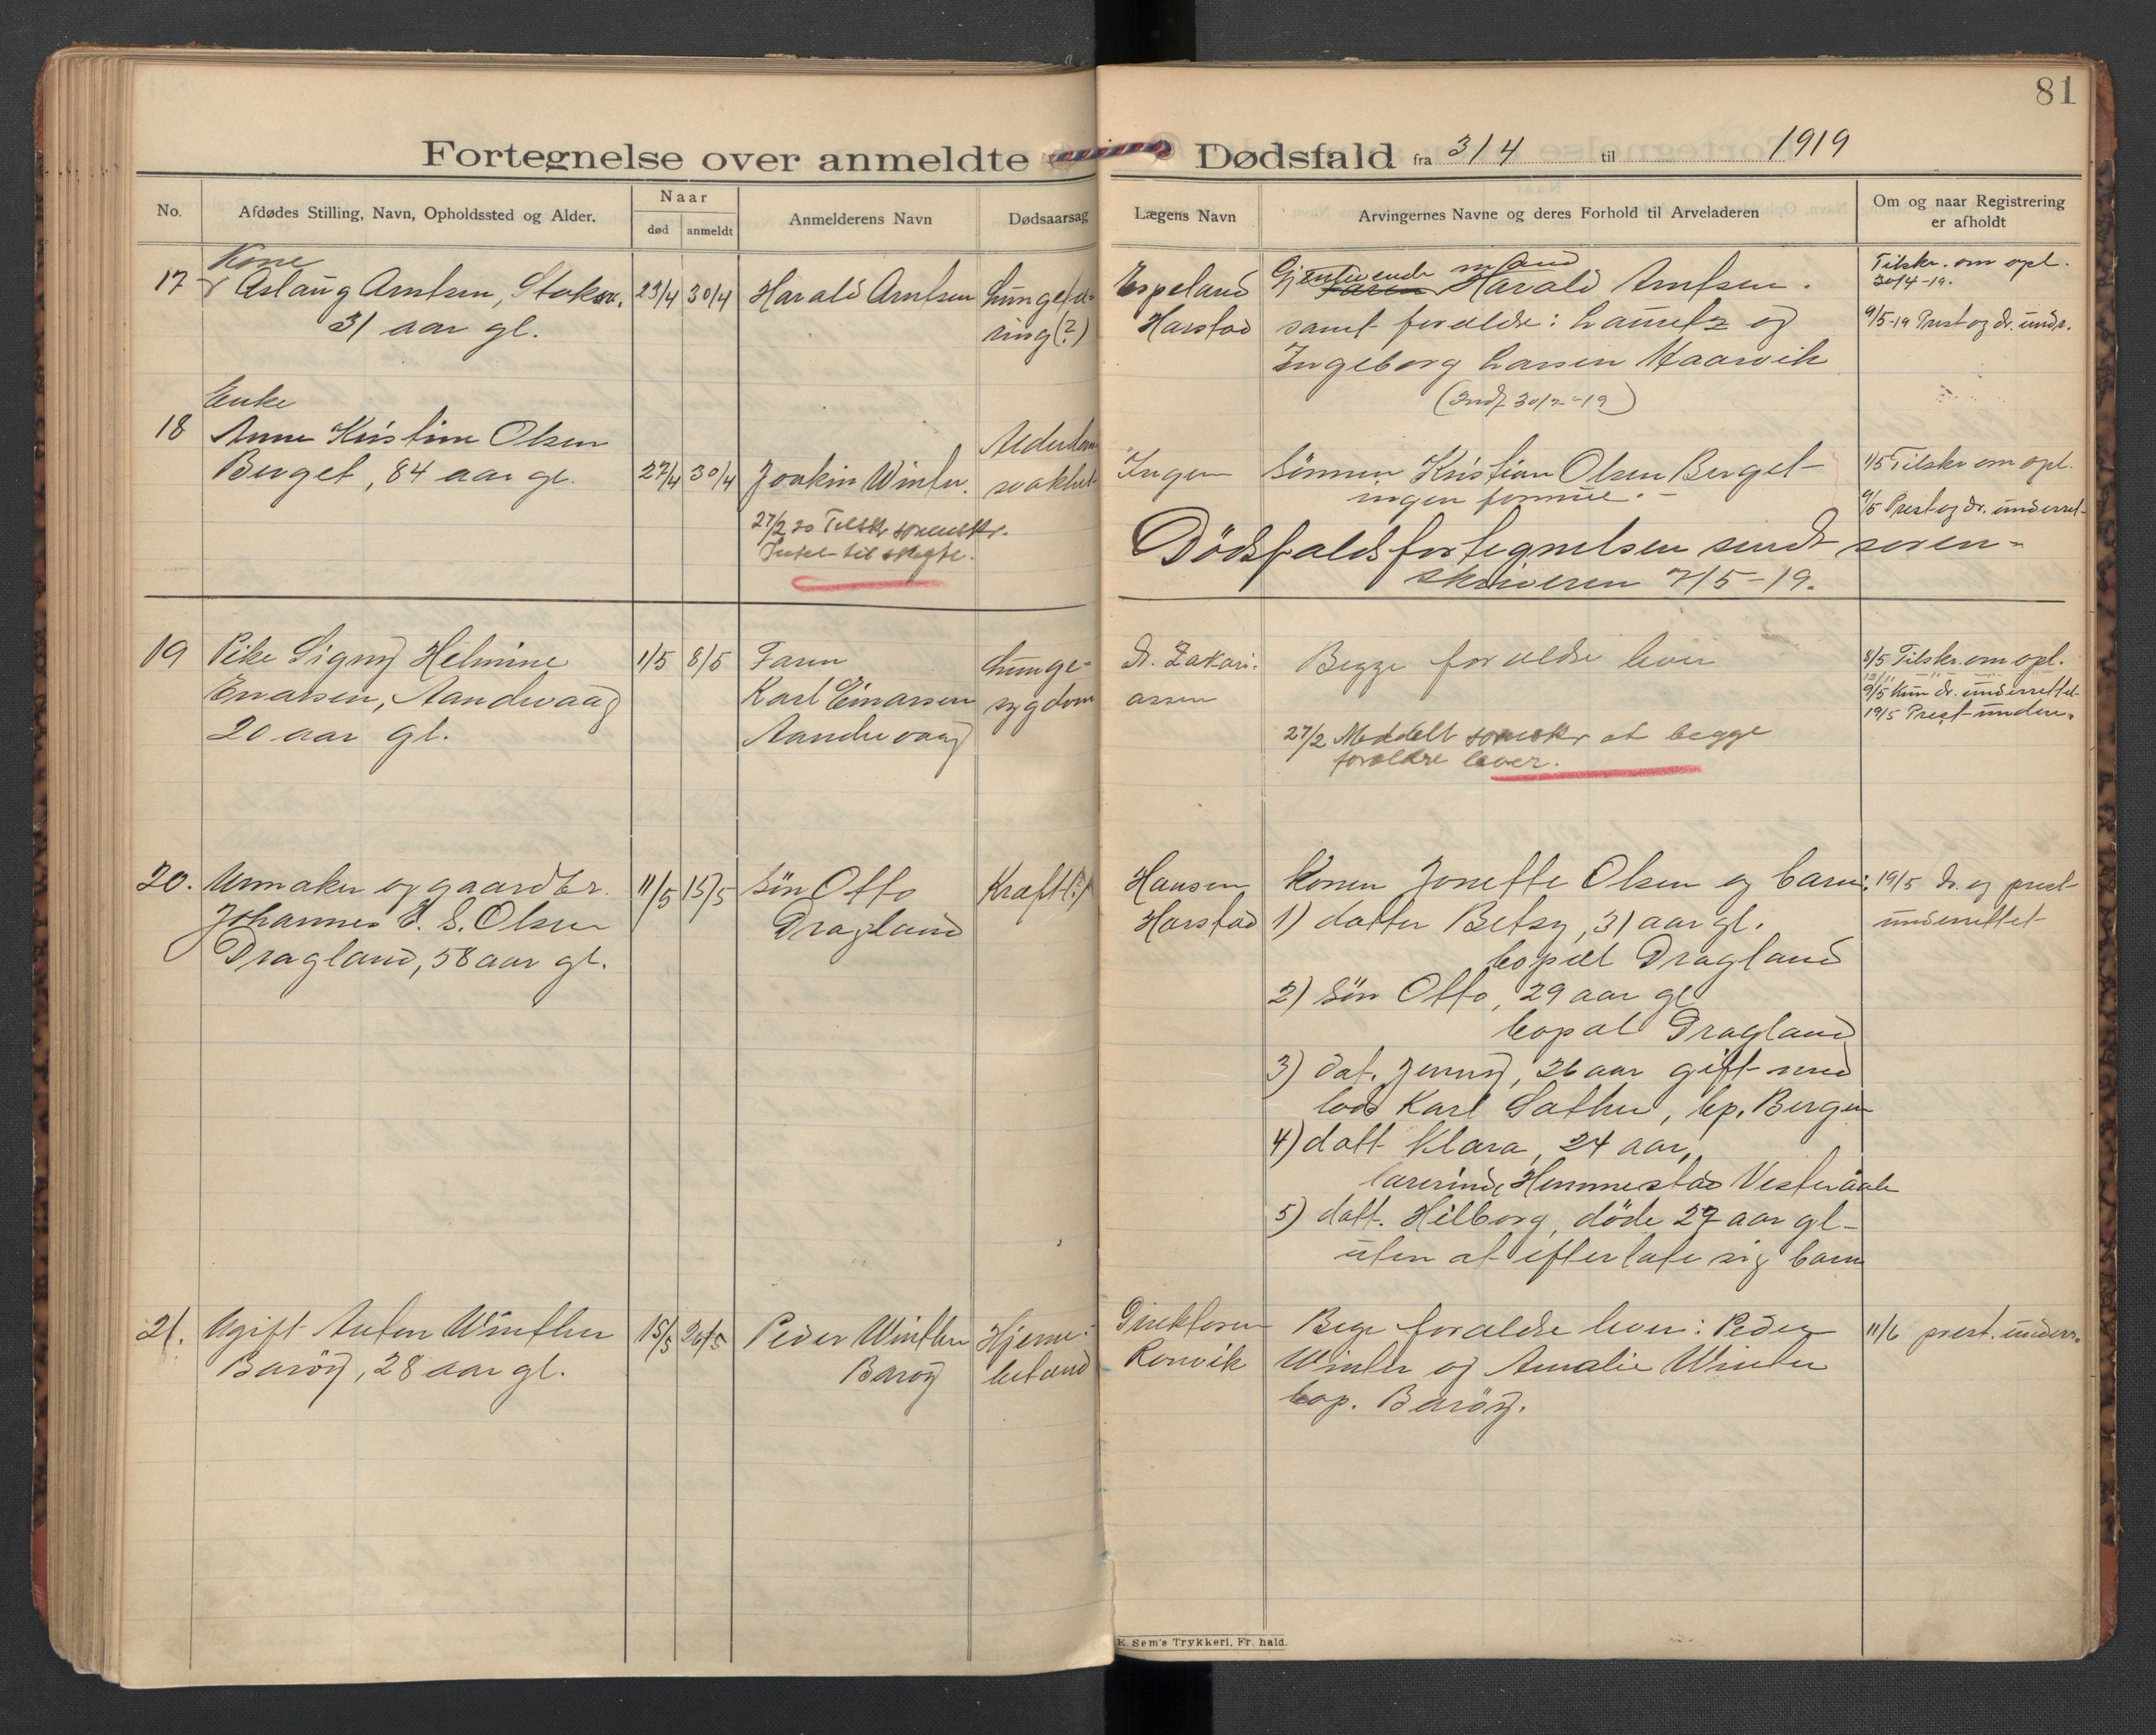 81
Fortegnelse over anmeldte Dødsfald fra 3/4 til 1919
No.
Afdødes Stilling, Navn, Opholdssted og Alder.
Naar
død
anmeldt
Anmelderens Navn
Dødsaarsag
Lægens Navn
Arvingernes Navne og deres Forhold til Arveladeren
Om og naar Registrering
er afholdt
Kone
17 Aslaug Arntsen, 23/4 30/4 Harald Arntsen
31 aar gl.
ring(?)
Espeland
Harstad
Gjenlevende mand Harald Arntsen.
samt forældre: Lauritz og
Ingeborg Larsen Haarvik
Tilskr. om opl.
30/4-19.
9/5-19 Prest og dr. undr.
Enke
18 Anne Kristine Olsen
Berget, 84 aar gl. 27/4 30/4 Joakin Winter.
Alderdoms
svakhet
27/2 20 Tilskr sorenskr.
Intet til skifte.
Ingen
Sønnen Kristian Olsen Berget
ingen formue.
1/5 Tilskr om opl.
9/5 Prest og dr. underret
Dødsfaldsfortegnelsen sendt soren-
skriveren 7/5-19.
19 Pike Signy Helmine 1/5 8/5 Faren
Einarsen, Aandervaag Karl Einarsen
20 aar gl. Aandervaag
Lunge-
sygdom
Dr. Zakari-
assen
Begge forældre lever
27/2 Meddelt sorenskr at begge
forældre lever.
8/5 Tilskr. om opl.
9/5 Kun dr. underrettet
19/5 Prest under.
20. Urmaker og gaardbr. 11/5 15/5 Søn Otto Kræft(?)
Johannes E. S. Olsen Dragland
Dragland, 58 aar gl.
Hansen
Harstad
Konen Jonette Olsen og barn:
1) datter Betsy, 31 aar gl.
bopæl Dragland
2) Søn Otto, 29 aar gl
bopæl Dragland
3) dat. Jenny, 26 aar gift med
los Karl Sather, bp. Bergen
4) datt Klara, 24 aar,
lærerinde Hemmestad Vesteraalen
5) datt. Hilborg, døde 27 aar gl-
uten at efterlate sig barn
19/5 dr. og prest
underrettet
21. Ugift Anton Winther 15/5 26/5 Peder Winther Hjerne-
Barøy, 28 aar gl. Barøy
Direktøren
Ronvik
Bege forældre lever: Peder
Winter og Amalie Winter
bop. Barøy.
11/6 prest. underr.
E. Sem's Trykkeri, Fr. hald.